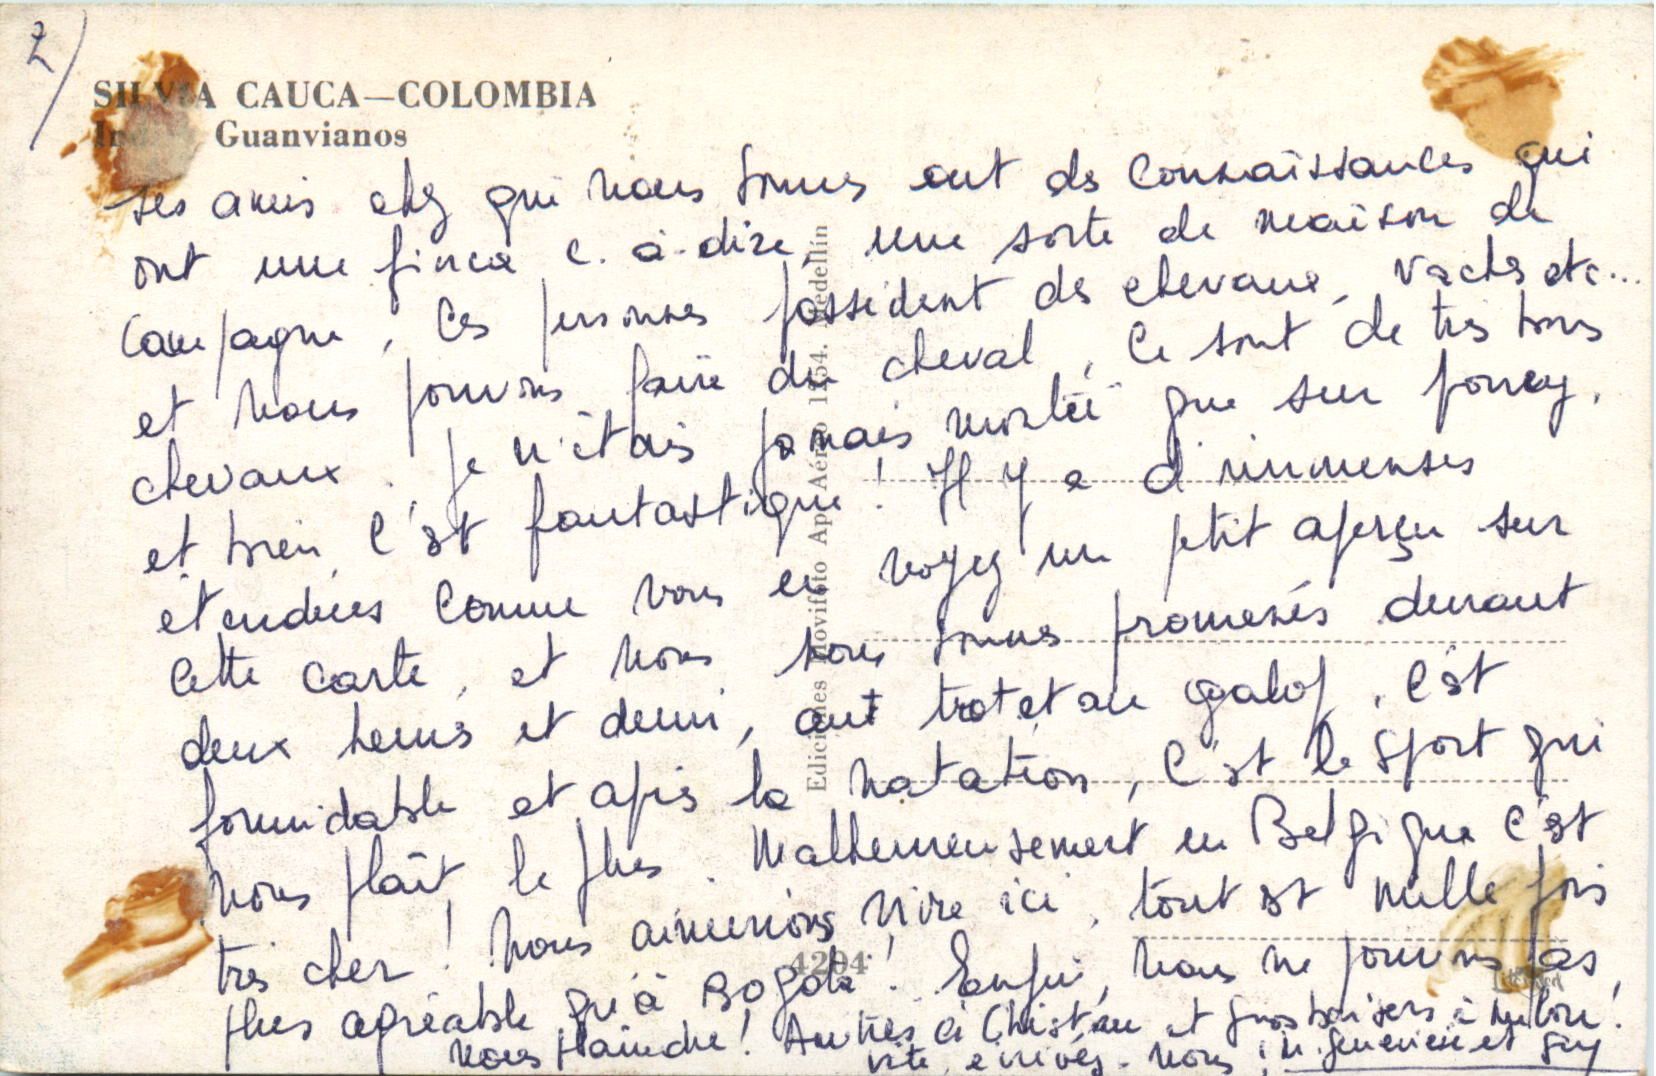 2)
SILVIA CAUCA—COLOMBIA
Guanvianos
ses amis chez qui nous sommes ont des connaissances qui
ont une finca c. à. dire, une sorte de maison de
campagne, ces personnes possèdent des chevaux, vaches etc...
et nous pouvons faire du cheval, ce sont de très bons
chevaux. je n'étais jamais montée que sur poney,
et bien c'est fantastique! Il y a d'immenses
étendues comme vous en voyez un petit aperçu sur
cette carte, et nous nous sommes promenés durant
deux heures et demi, au trot et au galop, c'est
formidable et après la natation, c'est le sport qui
nous plaît le plus. Malheureusement en Belgique c'est
très cher! Nous aimerions vivre ici, tout est mille fois
plus agréable qu'à Bogota! Enfin, nous ne pouvons pas
nous plaindre! à Christian et gros baisers à
vite, écrivez-nous! Geneviève et Guy
Ediciones Movifoto Apto Aéreo 1154. Medellín
4204